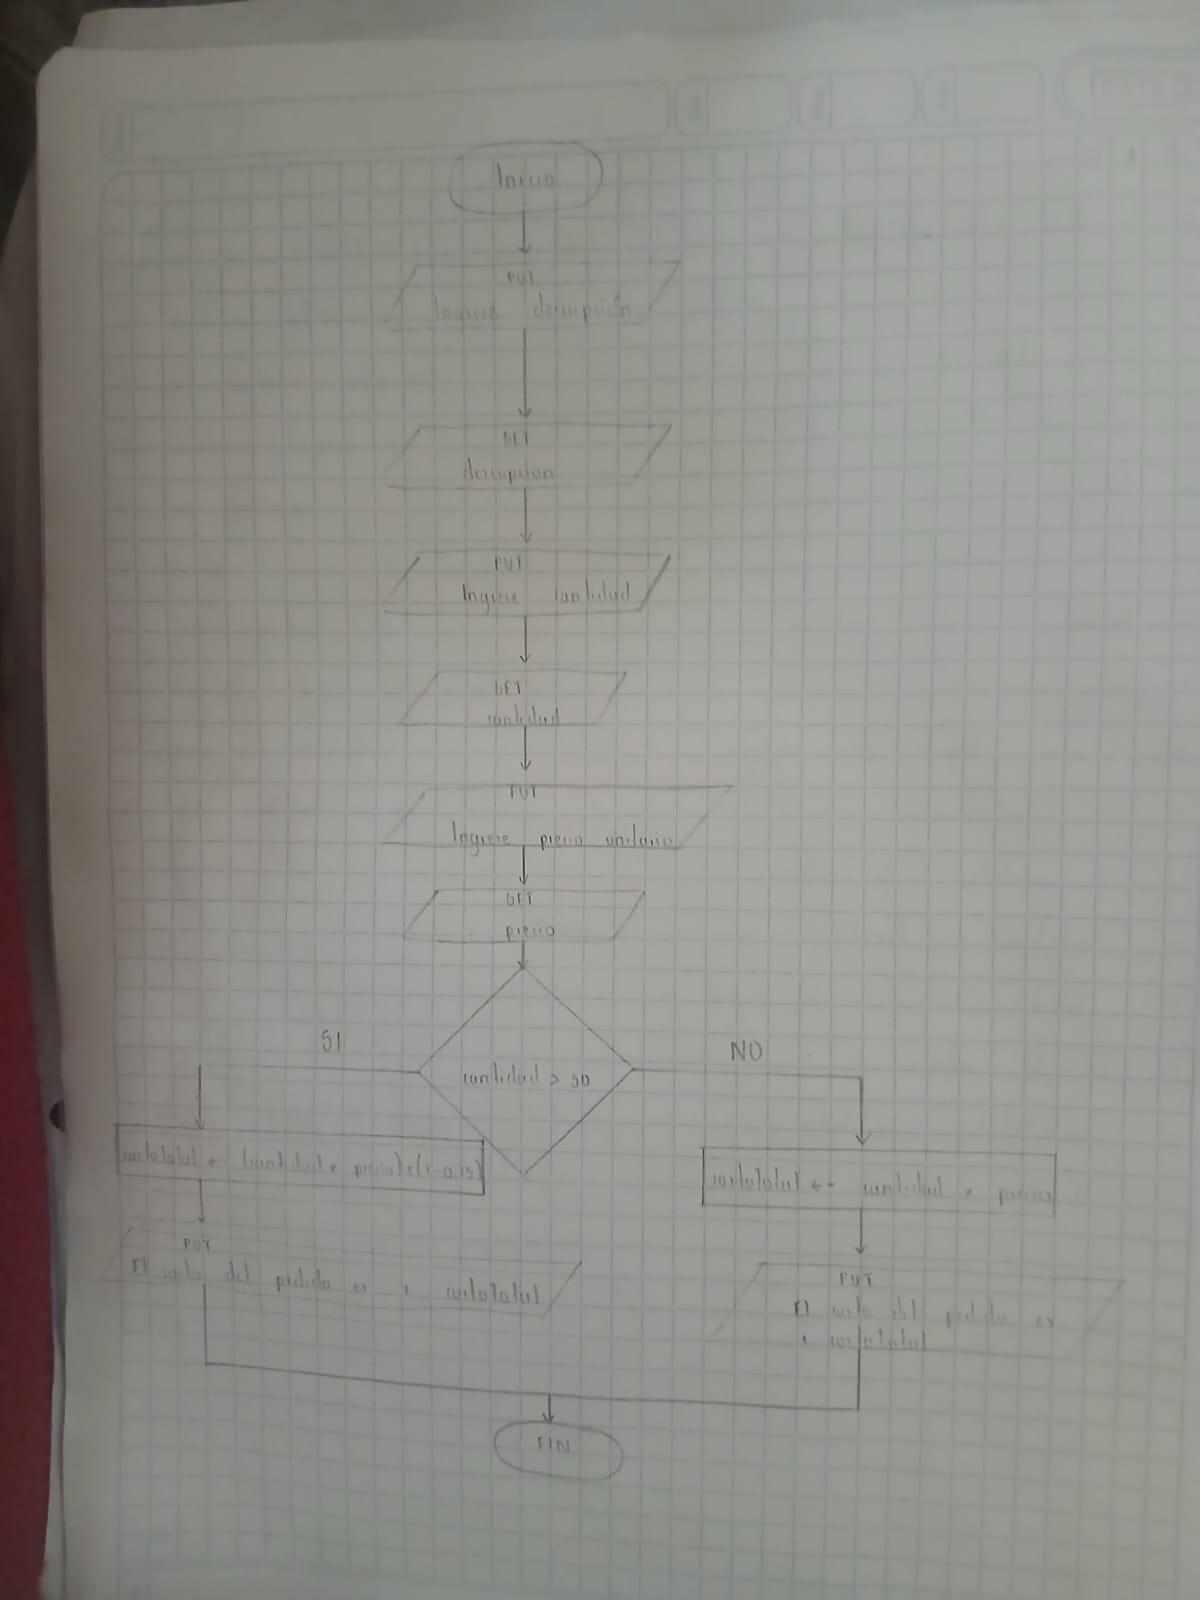 Inicio
PUT
Ingrese descripción
GET
descripcion
PUT
Ingrese cantidad
GET
cantidad
PUT
Ingrese precio unitario
GET
precio
SI
NO
cantidad > 50
costototal ← (cantidad * precio) * (1-0.15)
costototal ← cantidad * precio
PUT
El costo del pedido es , costototal
PUT
El costo del pedido es
, costototal
FIN